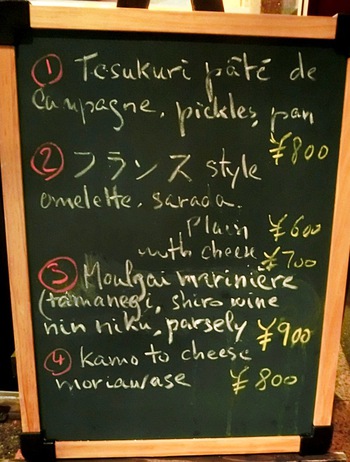 ① Tesukuri pâté de
Campagne, pickles, pan
¥800
② フランス style
omelette, sarada.
Plain ¥600
with cheese ¥700
③ Moulgai marinière
(tamanegi, shiro wine
nin niku, parsely ¥900
④ kamo to cheese
moriawase ¥800